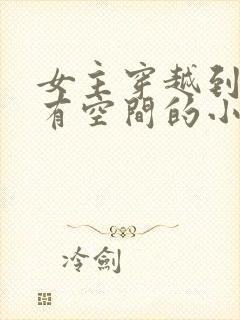 女主穿越到
有空間的小
冷劍